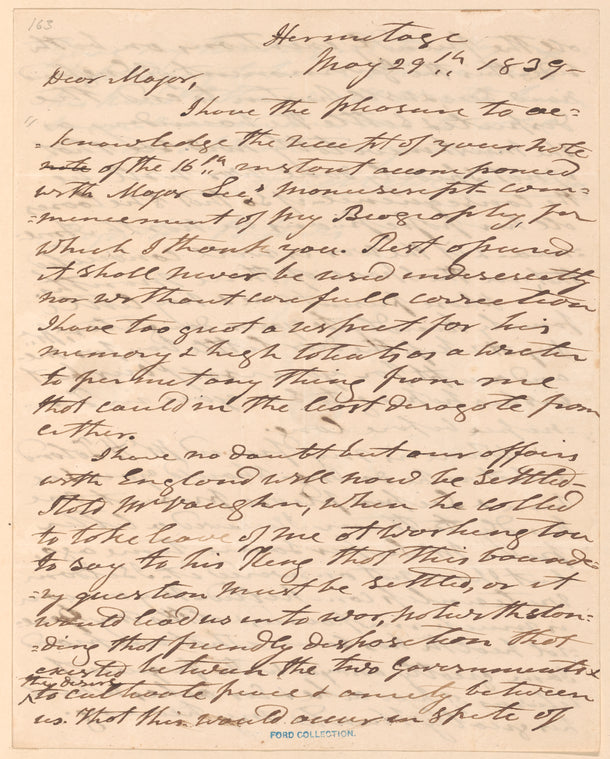 163
Hermitage
May 29th 1839-
Dear Major,
I have the pleasure to ac=
=knowledge the receipt of your note
note of the 16th instant accompanied
with Major Lee's manuscript com=
=mencement of my Biography, for
which I thank you. Rest assured
it shall never be used indiscreetly
nor without carefull correction
I have too great a respect for his
memory & high talents as a writer
to permit any thing from me
that could in the least derogate from
either.
I have no doubt but our affairs
with England will now be settled-
I told Mr Vaughn, when he called
to take leave of me at Washington
to say to his King that this bounde=
=ry question must be settled, or it
would lead us into war, notwithstan=
=ding that friendly disposition that
existed between the two Governments &
this desire
to cultivate peace & amity between
us. That this would occur in spite of
FORD COLLECTION.